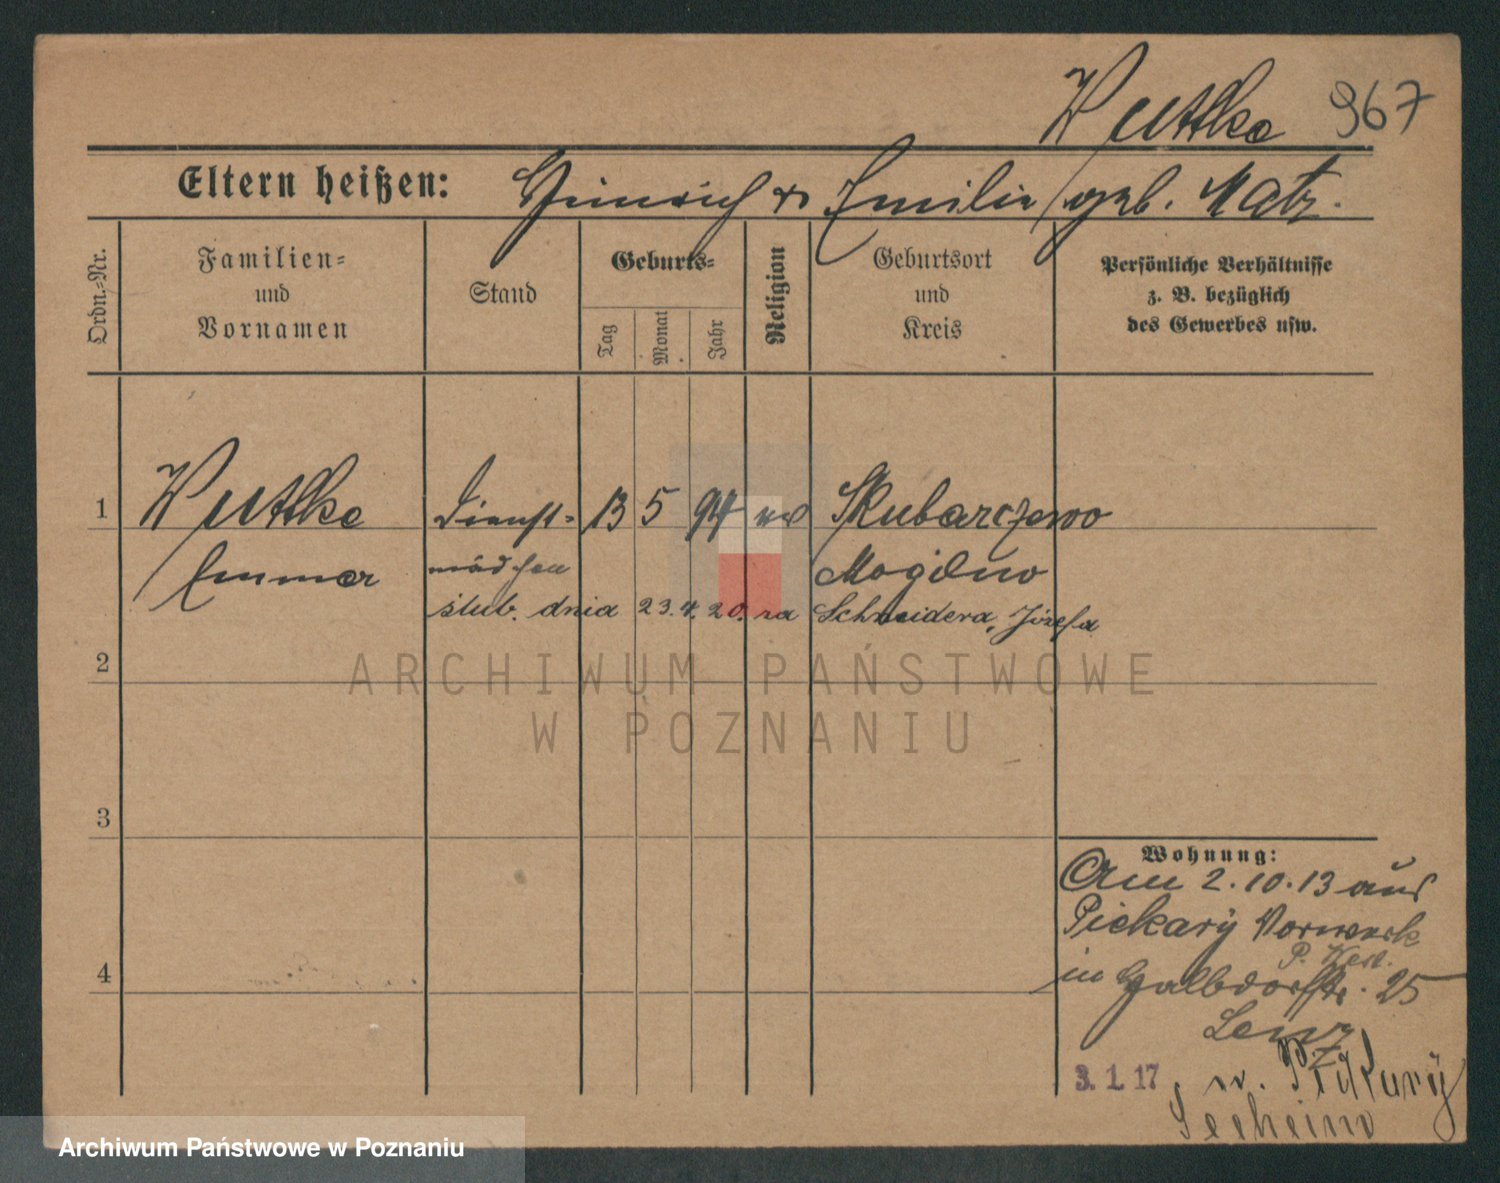 Wuttke 967
Eltern heißen: Heinrich & Emilie geb. Matz.
Ordn.-Nr.
Familien- und Vornamen
Stand
Geburts-
Tag
Monat
Jahr
Religion
Geburtsort und Kreis
Persönliche Verhältnisse
z. B. bezüglich
des Gewerbes usw.
1 Wuttke Dienst- 13 5 94 ev Skubarczewo
Emma mädchen Mogilno
ślub. dnia 23.4.20. za Schneidera, Józefa
2
3
4
ARCHIWUM PAŃSTWOWE
W POZNANIU
Wohnung:
Am 2.10.13 aus
Piekary Vorwerk
P. West.
in Halbdorfstr. 25
Lenz
3. 1. 17 n. Piekary
Archiwum Państwowe w Poznaniu